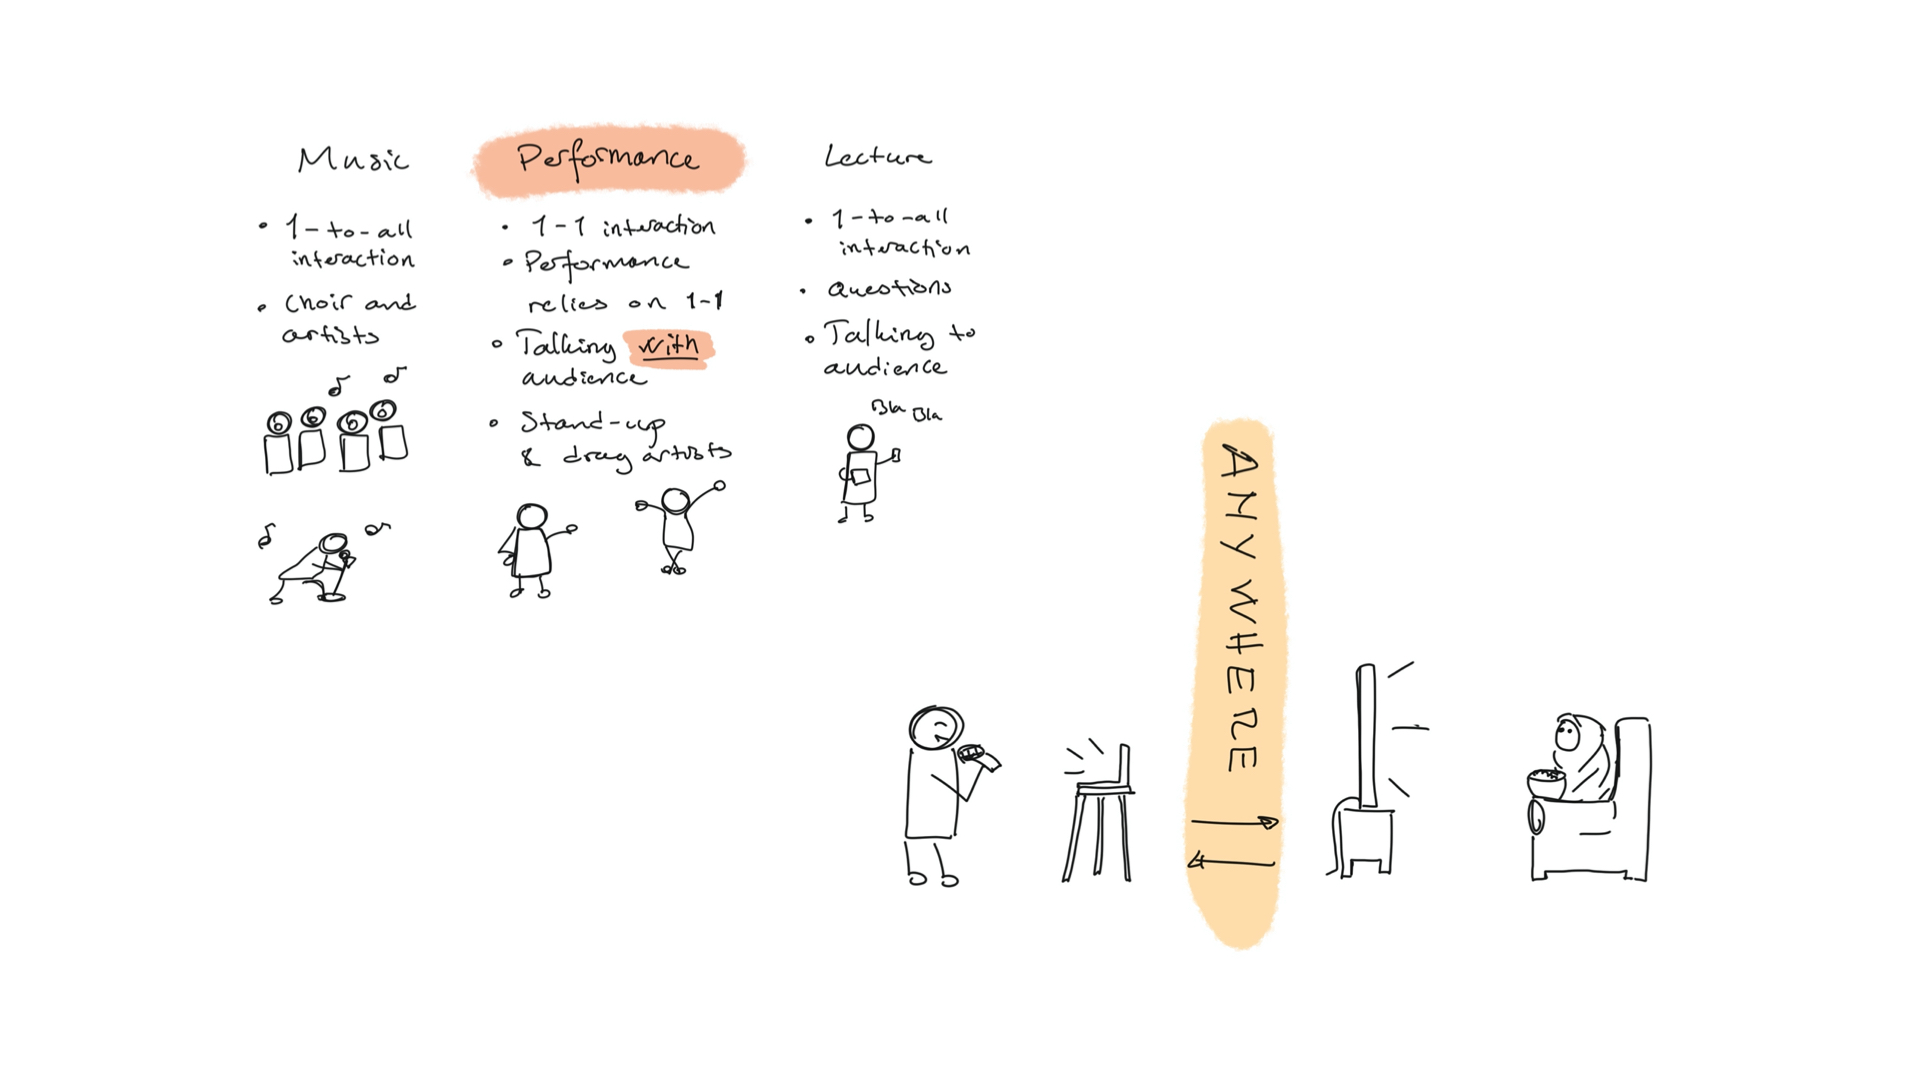 Music
• 1-to-all
interaction
• Choir and
artists
Performance
• 1-1 interaction
• Performance
relies on 1-1
• Talking with
audience
• Stand-up
& drag artists
Lecture
• 1-to-all
interaction
• Questions
• Talking to
audience
Bla Bla
ANYWHERE